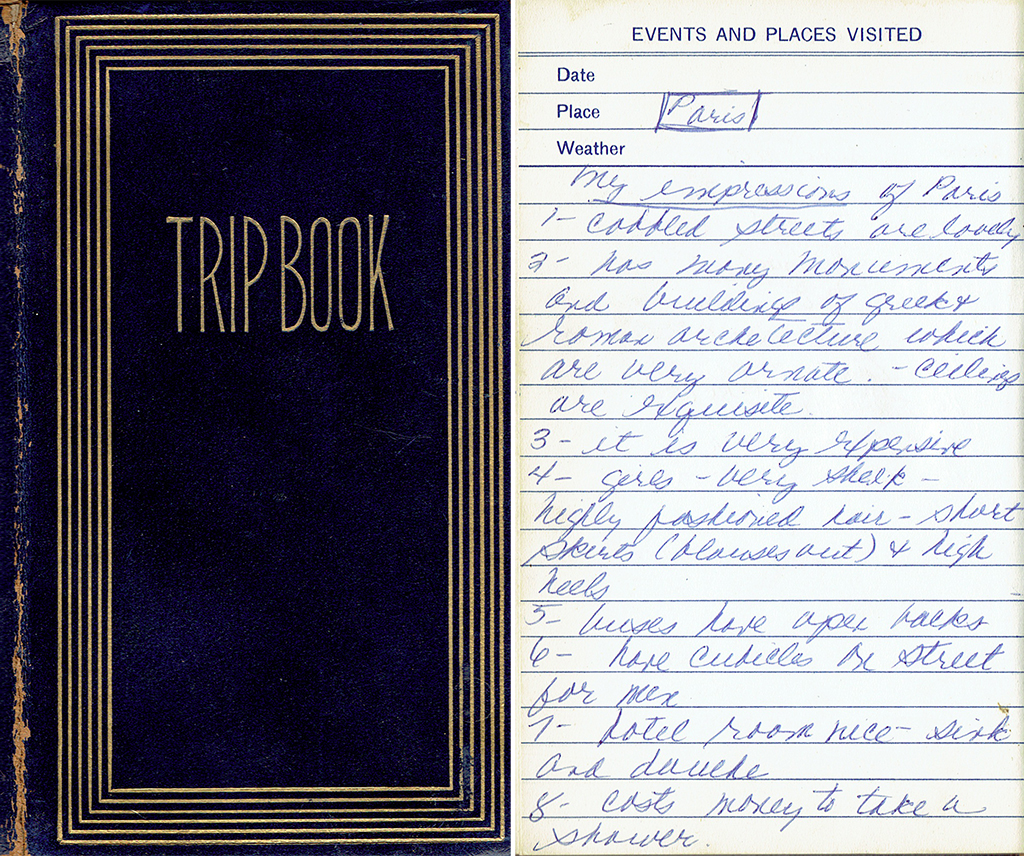 TRIP BOOK
EVENTS AND PLACES VISITED
Date
Place Paris
Weather
My impressions of Paris
1- cobbled streets are lovely
2- has many monuments
and buildings of greek &
roman architecture which
are very ornate. - ceilings
are exquisite.
3- it is very expensive
4- girls - very sheik -
highly fashioned hair - short
skirts (blouses out) & high
heels
5- buses have open backs
6- have cubicles on street
for men
7- hotel room nice - sink
and douche
8- costs money to take a
shower.